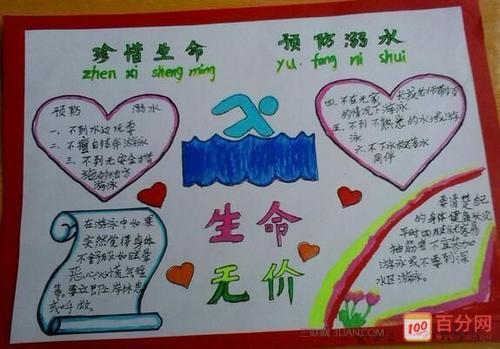 珍惜生命 预防溺水
zhen xi sheng ming yu fang ni shui
预防 溺水
一、不到水边玩耍
二、不擅自结伴游泳
三、不到无安全措
施的地方
游泳
四、不在无家长或老师带
的情况下游泳
五、不到不熟悉的水域游
泳
六、不下水救落水
同伴
生命
无价
在游泳中如果
突然觉得身体
不舒服如眩晕
恶心心慌气短
等要立即上岸休息
或呼救
要清楚自己
的身体健康状况
平时四肢就容易
抽筋者不宜参加
游泳或不要到深
水区游泳。
三联网 3LIAN.COM
100 百分网